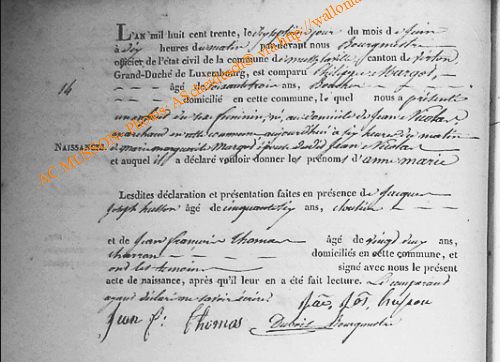 L'AN mil huit cent trente, le Septième jour du mois de Juin
à Dix heures du matin, par-devant nous Bourgmestre
officier de l'état civil de la commune de canton de Virton,
Grand-Duché de Luxembourg, est comparu Philippe Margot,
14
âgé de soixante trois ans,
domicilié en cette commune, le quel nous a présenté
un enfant du sexe féminin, né, au domicile de Jean Nicolas
marchand en cette commune aujourd'hui à six heures du matin
NAISSANCES.
de marie marguerite Margot épouse dudit Jean Nicolas
et auquel il a déclaré vouloir donner les prénoms d'anne marie
Lesdites déclaration et présentation faites en présence de Jacque
Joseph âgé de cinquante six ans, cloutier
et de Jean françois thomas âgé de vingt deux ans,
charron domiciliés en cette commune, et
ont les témoins signé avec nous le présent
acte de naissance, après qu'il leur en a été fait lecture. Le comparant
ayant déclaré ne savoir écrire
Jean f. Thomas
Bourgmestre
AC MUSSON: Photos AS via http://wallonia